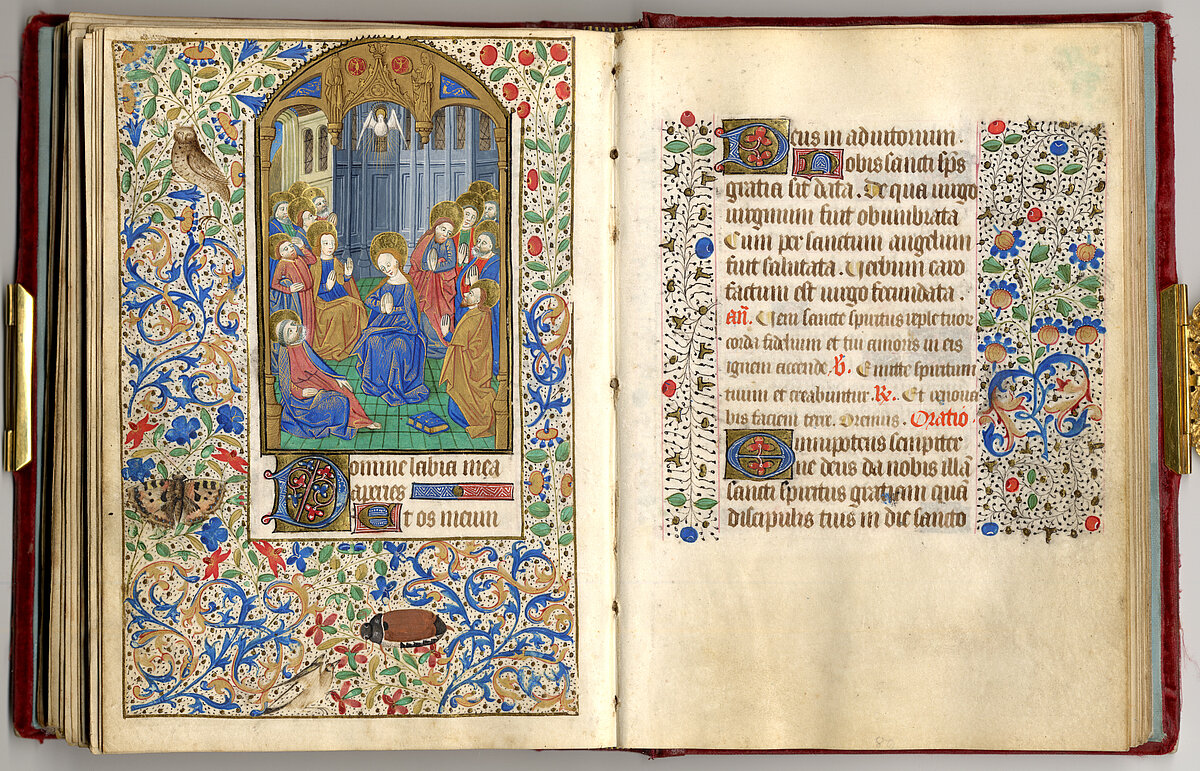 Domine labia mea
aperies
Et os meum
Deus in adiutorium.
Nobis sancti sp̄s
gratia sit data. De qua uirgo
uirginum fuit obumbrata
Cum per sanctum angelum
fuit salutata. Uerbum caro
factum est uirgo fecundata.
an̄. Ueni sancte spiritus reple tuor
corda fidelium et tui amoris in eis
ignem accende. V̄. Emitte spiritum
tuum et creabuntur. R̄. Et renoua
bis faciem terre. Oremus. Oratio.
Omnipotens sempiter
ne deus da nobis illā
sancti spiritus gratiam quā
discipulis tuis in die sancto